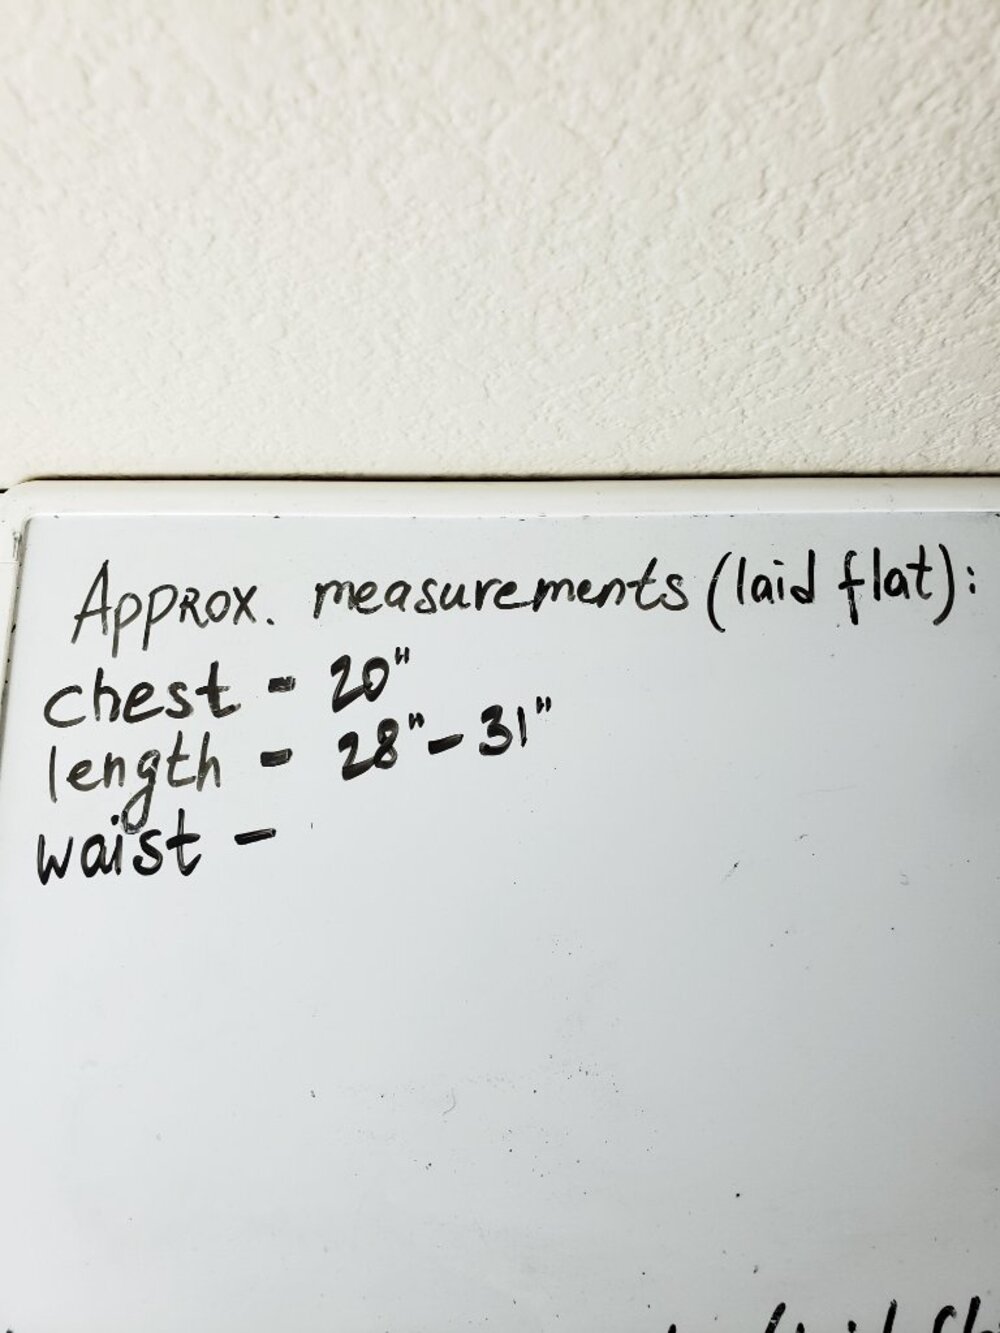 Approx. measurements (laid flat):
chest - 20"
length - 28" - 31"
waist -